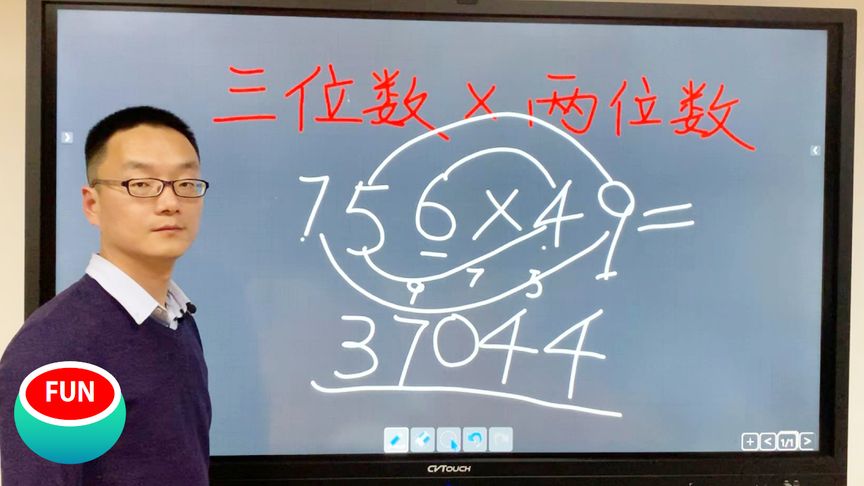 三位数×两位数
756×49=
9 7 5
37044
FUN
1/1
CVTOUCH